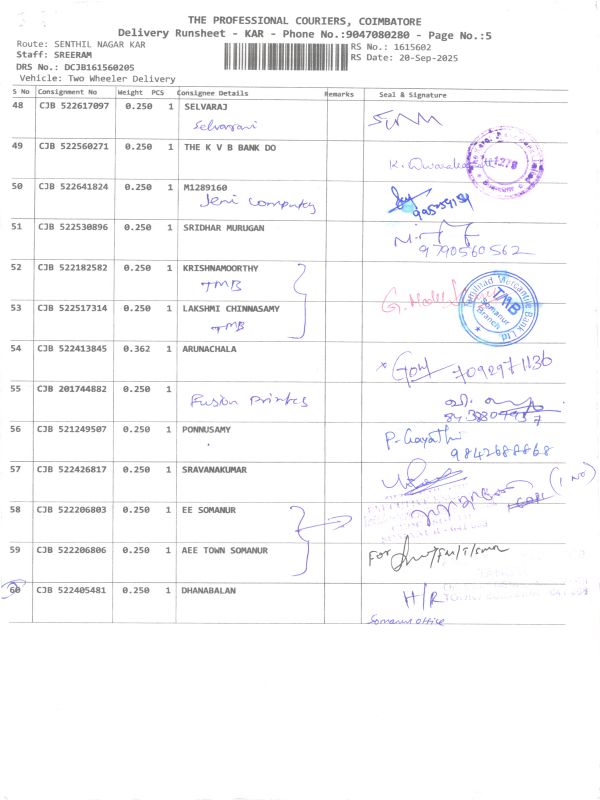 THE PROFESSIONAL COURIERS, COIMBATORE
Delivery Runsheet - KAR - Phone No.:9047080280 - Page No.:5
Route: SENTHIL NAGAR KAR
RS No.: 1615602
Staff: SREERAM
RS Date: 20-Sep-2025
DRS No.: DCJB161560205
Vehicle: Two Wheeler Delivery
S No Consignment No Weight PCS Consignee Details Remarks Seal & Signature
48 CJB 522617097 0.250 1 SELVARAJ
Selvarani
49 CJB 522560271 0.250 1 THE K V B BANK DO
1278
50 CJB 522641824 0.250 1 M1289160
Jeni Computer
51 CJB 522530896 0.250 1 SRIDHAR MURUGAN
9790560562
52 CJB 522182582 0.250 1 KRISHNAMOORTHY
TMB
Tamilnad Mercantile Bank Ltd.
TMB
Somanur
Branch
53 CJB 522517314 0.250 1 LAKSHMI CHINNASAMY
TMB
54 CJB 522413845 0.362 1 ARUNACHALA
7092971136
55 CJB 201744882 0.250 1
Fusion Printes
56 CJB 521249507 0.250 1 PONNUSAMY
P. Gayathri
9842688868
57 CJB 522426817 0.250 1 SRAVANAKUMAR
(1 No)
58 CJB 522206803 0.250 1 EE SOMANUR
59 CJB 522206806 0.250 1 AEE TOWN SOMANUR
For
60 CJB 522405481 0.250 1 DHANABALAN
H/R
Somanur office